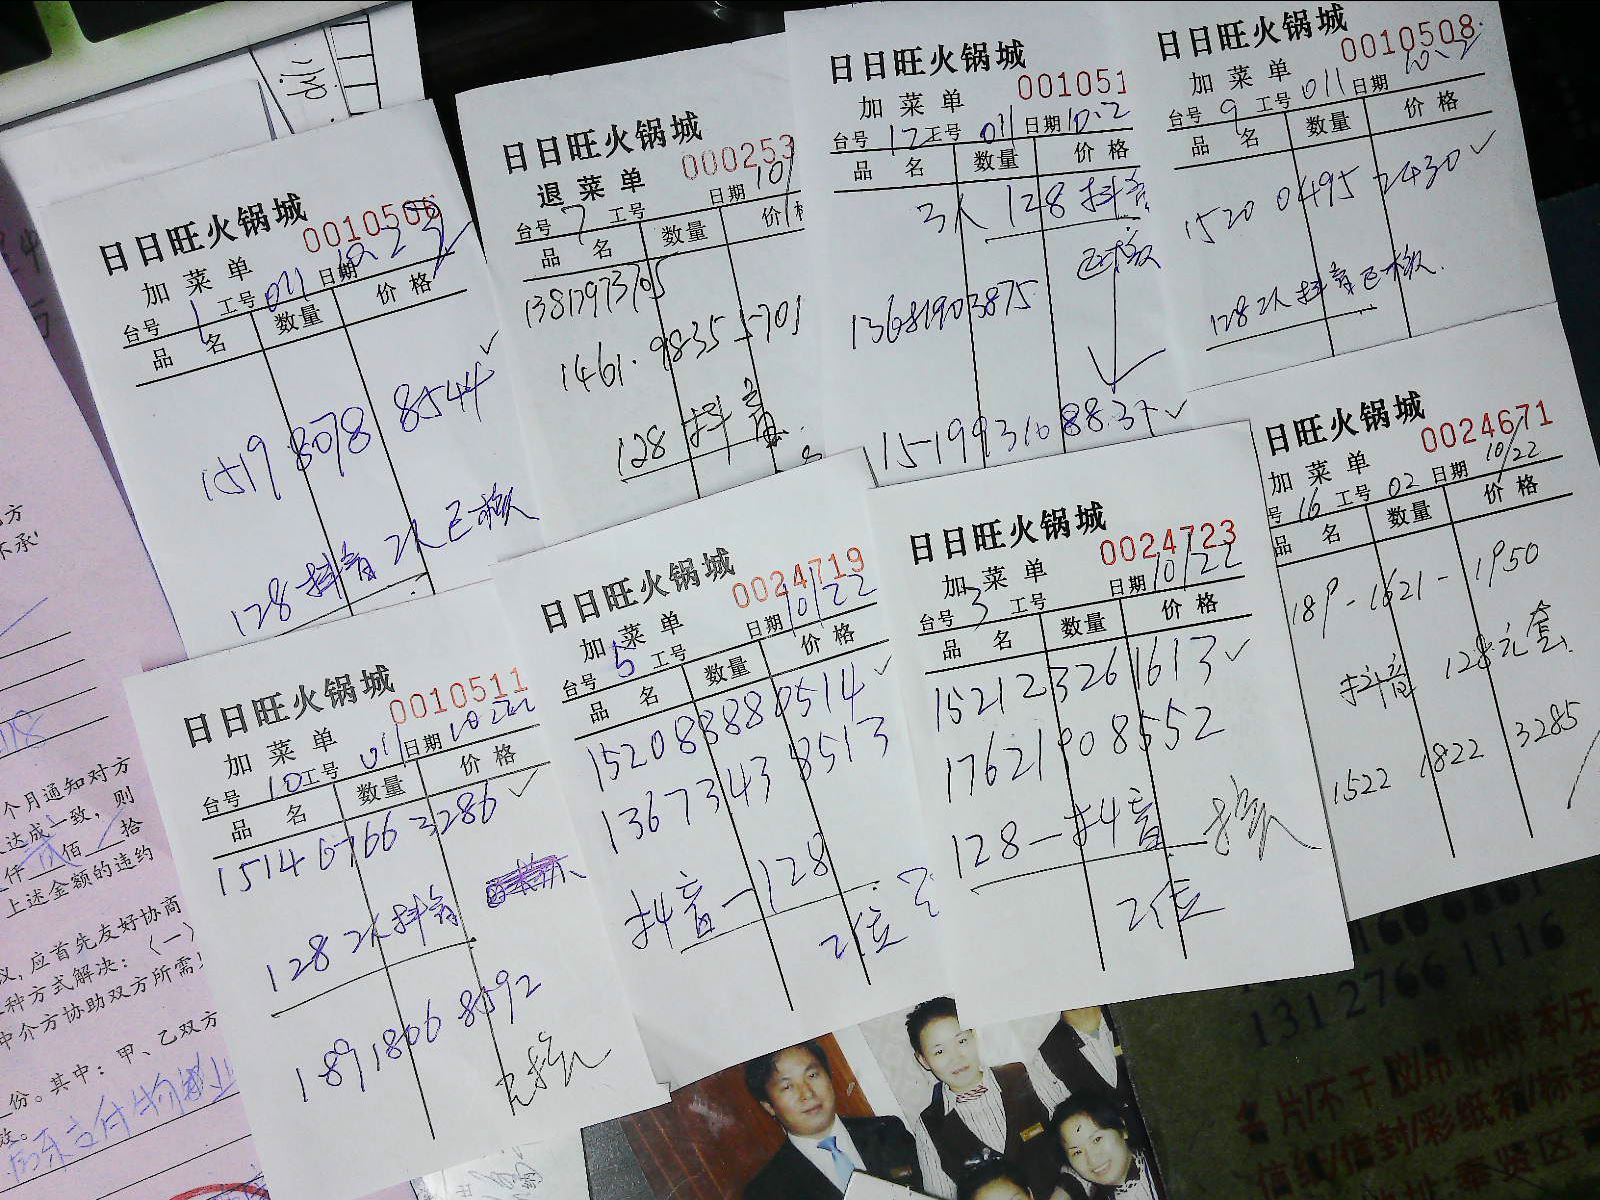 日日旺火锅城
0010506
加菜单
台号 1 工号 011 日期 10.22
品 名 数量 价格
1519 8078 8544 ✓
128抖音 2人已核
日日旺火锅城
000253
退菜单
日期 10/
台号 7 工号
品 名 数量 价
13817973705
1461.9835 5701
128 抖音
日日旺火锅城
001051
加菜单
台号 12 工号 011 日期 10.2
品 名 数量 价格
3人 128 抖音
已核
13681903875
15-1993108837 ✓
日日旺火锅城
0010508
加菜单 10.2
台号 9 工号 011 日期
品 名 数量 价格
1520 0495 2430 ✓
128 2人 抖音已核.
日日旺火锅城
0010511
加菜单
台号 10 工号 011 日期 10.22
品 名 数量 价格
1514 6766 3286 ✓
128 2人抖音
189 1806 8592
已核
日日旺火锅城
0024719
加菜单
台号 5 工号 日期 10/22
品 名 数量 价格
15208880514 ✓
1367343 8513
抖音-128
2位
日日旺火锅城
0024723
加菜单
台号 3 工号 日期 10/22
品 名 数量 价格
15212326 1613 ✓
17621908552
128-抖音 核
2位
日旺火锅城
0024671
加菜单
号 16 工号 02 日期 10/22
品 名 数量 价格
189-1621-1950
抖音 128元套
1522 1822 3285
方
不承
个月通知对方
达成一致，则
仟 佰 拾
上述金额的违约
议，应首先友好协商
种方式解决：〈一〉
中介方协助双方所需
甲、乙双方
份。其中：
131 2766 1116
名片/不干胶/吊牌/样本/无
信纸/信封/彩纸箱/标签
奉贤区